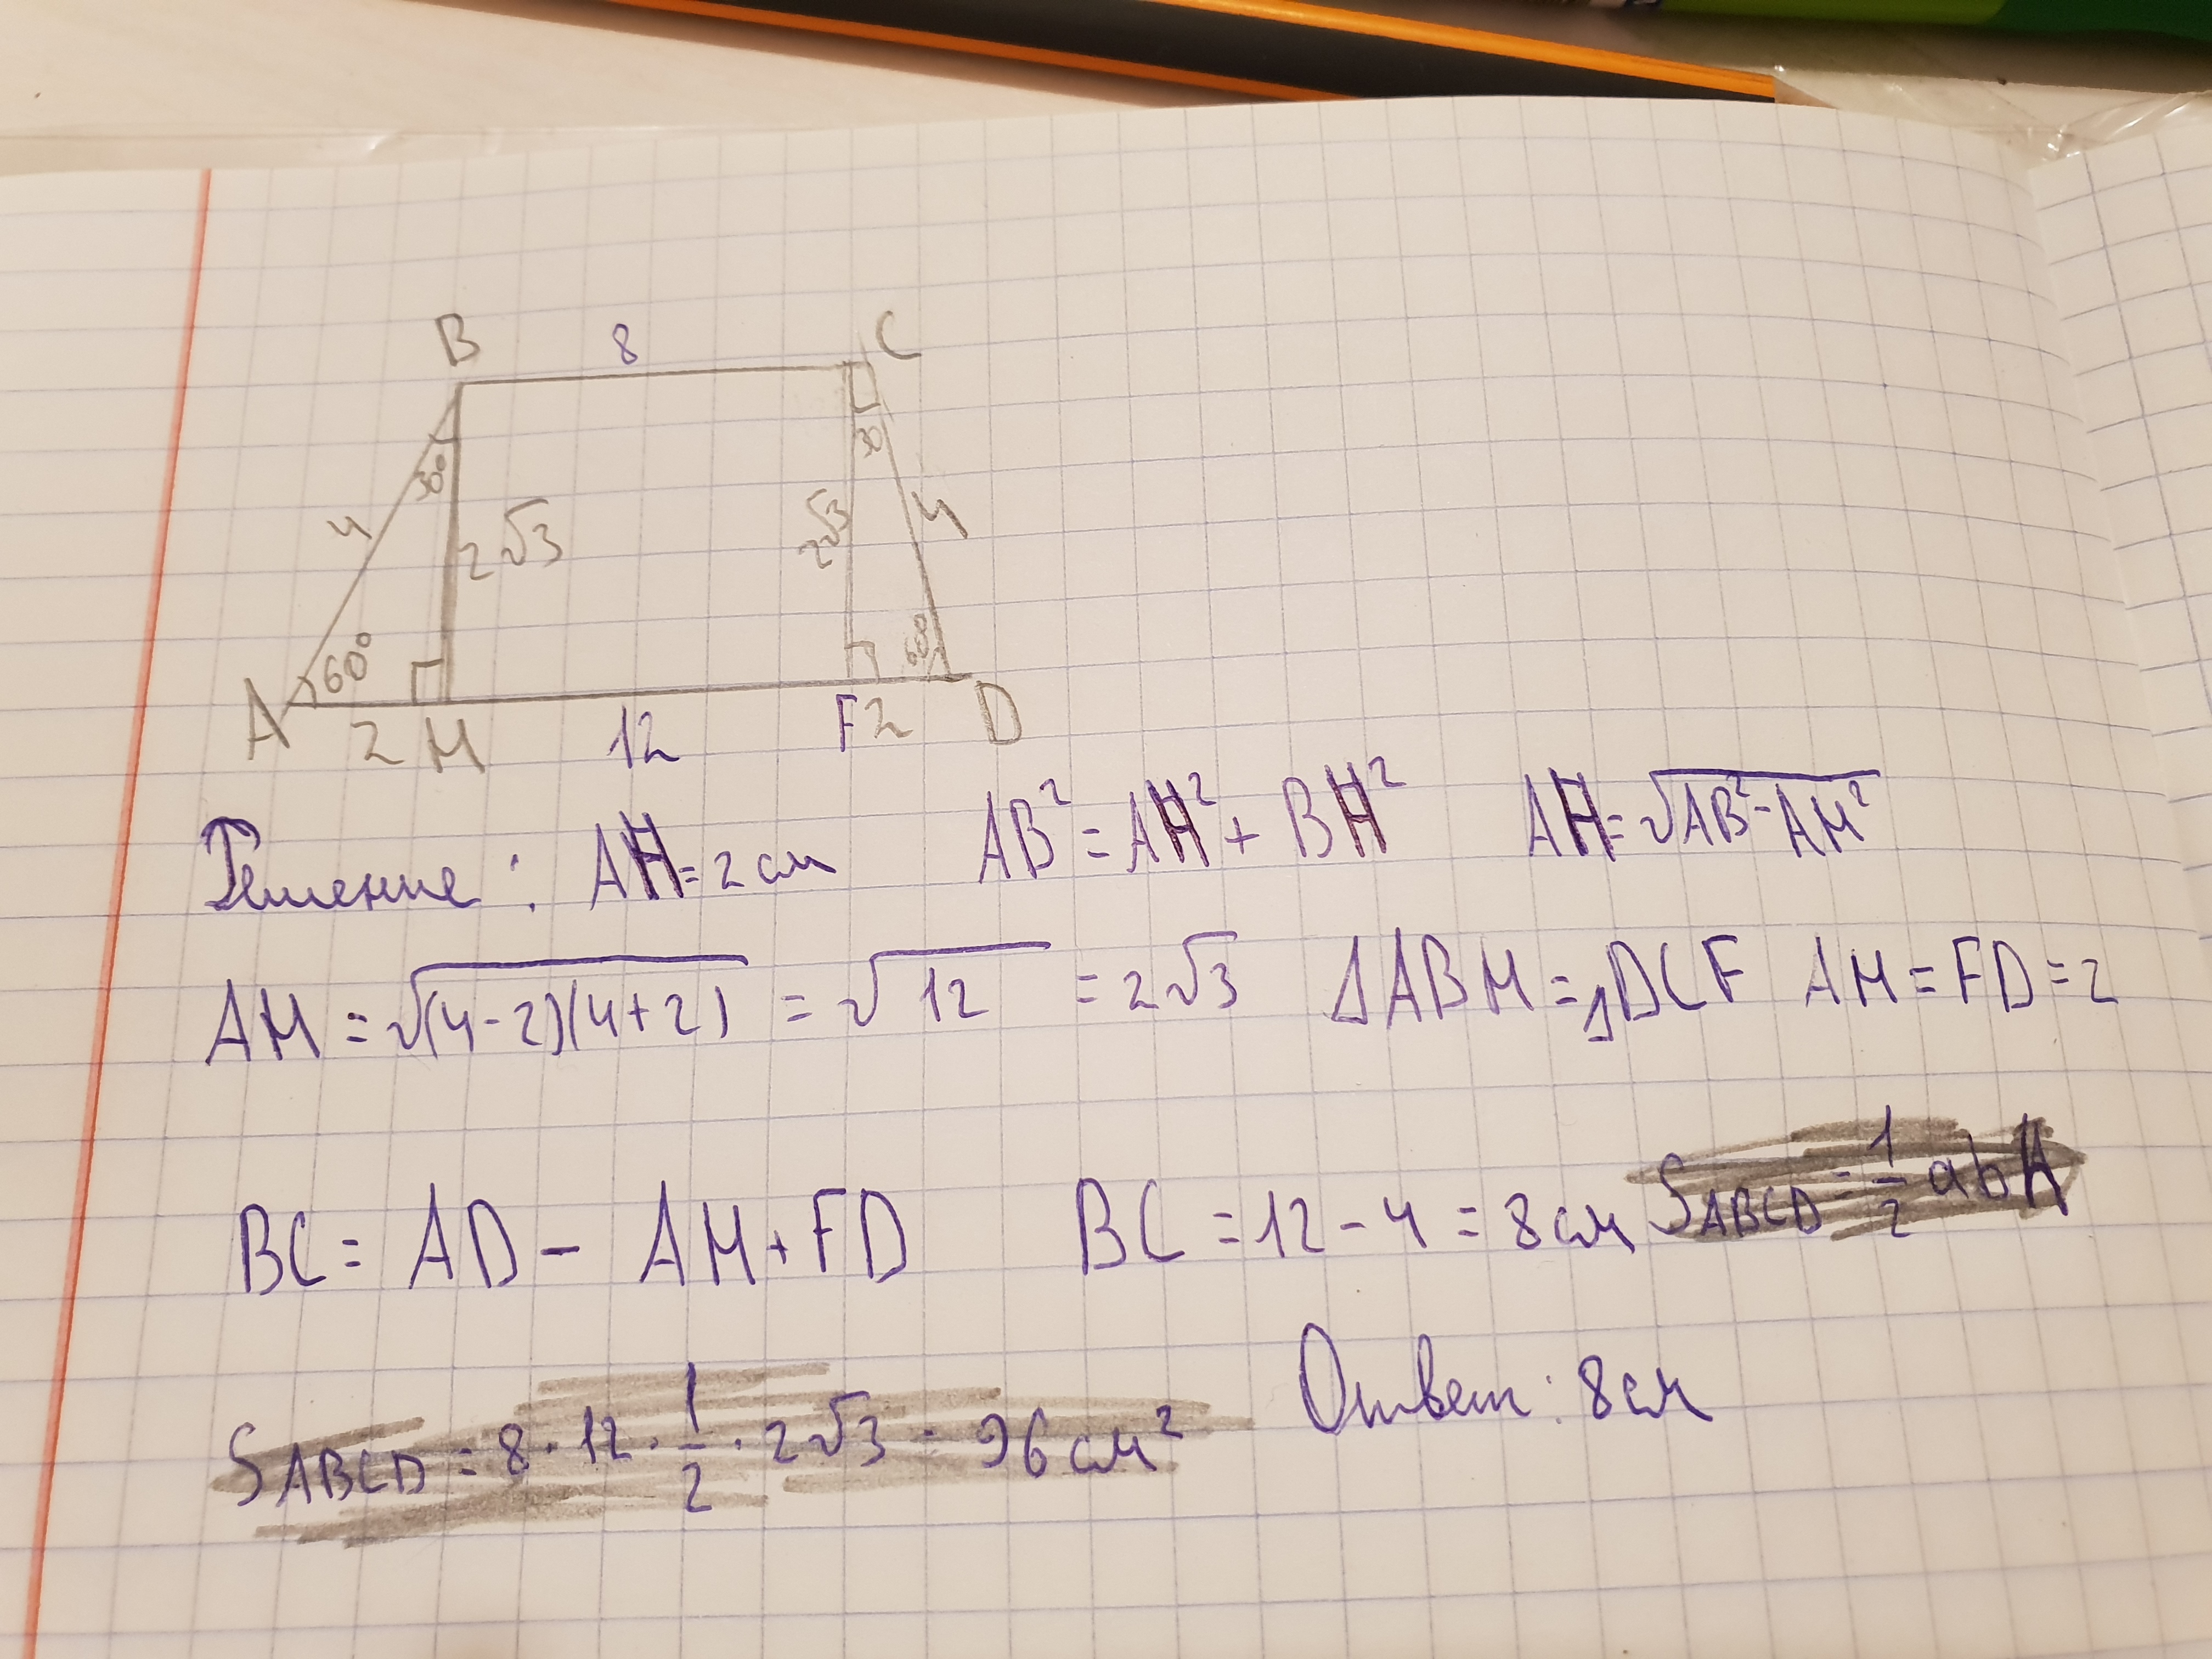 B 8 C
30° 30
4 2√3 2√3 4
60° 60°
A 2 H 12 F 2 D
Решение: AH=2см AB²=AH²+BH² AH=√AB²-AH²
AH=√(4-2)(4+2) = √12 = 2√3 ΔABH=ΔDCF AH=FD=2
BC= AD- AH+FD BC=12-4=8см SABCD=1/2 abh
SABCD=8·12·1/2·2√3=96см² Ответ: 8см